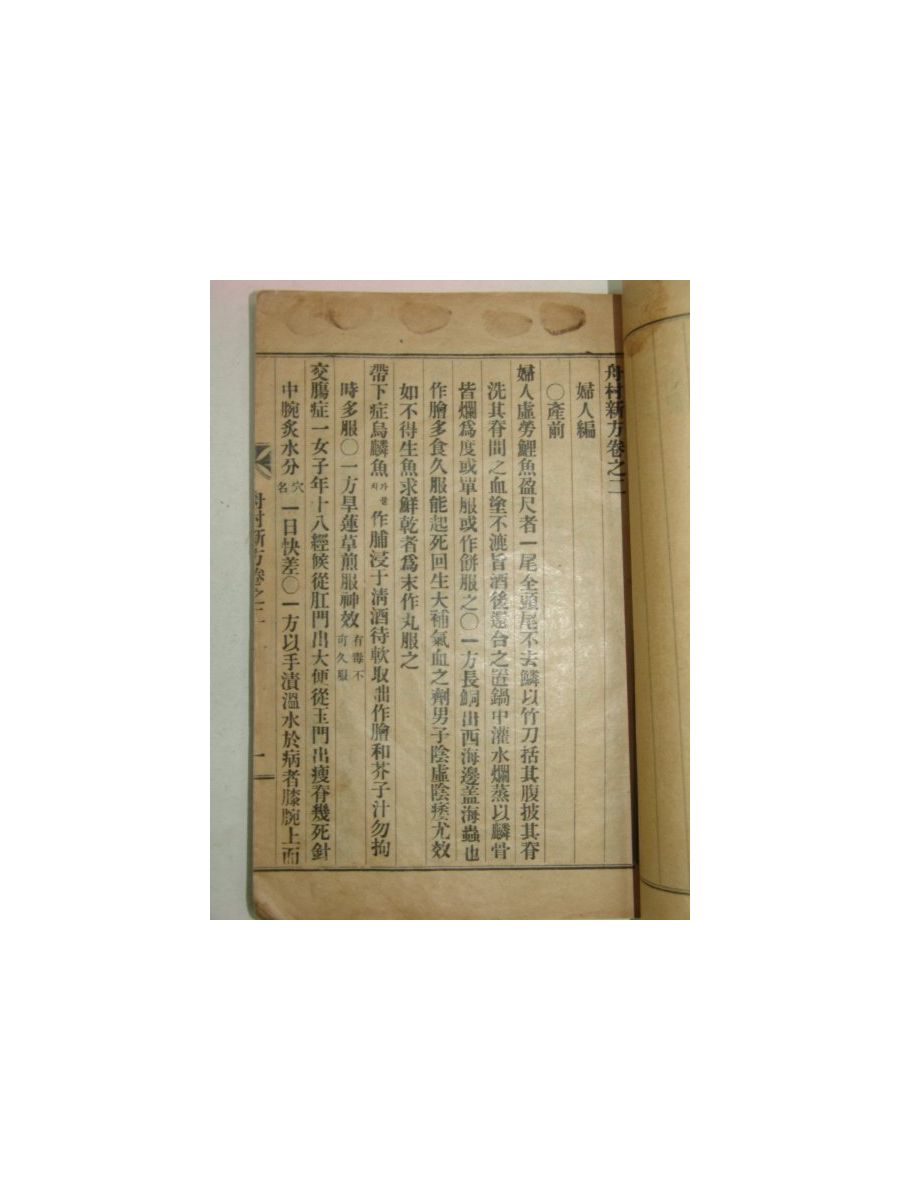 舟村新方卷之二
婦人編
〇產前
婦人虛勞鯉魚盈尺者一尾全頭尾不去鱗以竹刀括其腹披其脊
洗其脊間之血塗不漉旨酒後還合之置鍋中灌水爛蒸以鱗骨
皆爛爲度或單服或作餠服之〇一方長鮦出西海邊盖海蟲也
作膾多食久服能起死回生大補氣血之劑男子陰虛陰痿尤效
如不得生魚求鮮乾者爲末作丸服之
帶下症烏鱗魚가물치作脯浸于淸酒待軟取出作膾和芥子汁勿拘
時多服〇一方旱蓮草煎服神效有毒不可久服
交膓症一女子年十八經候從肛門出大便從玉門出瘦脊幾死針
中腕炙水分穴名一日快差〇一方以手漬溫水於病者膝腕上而
舟村新方卷之二 一